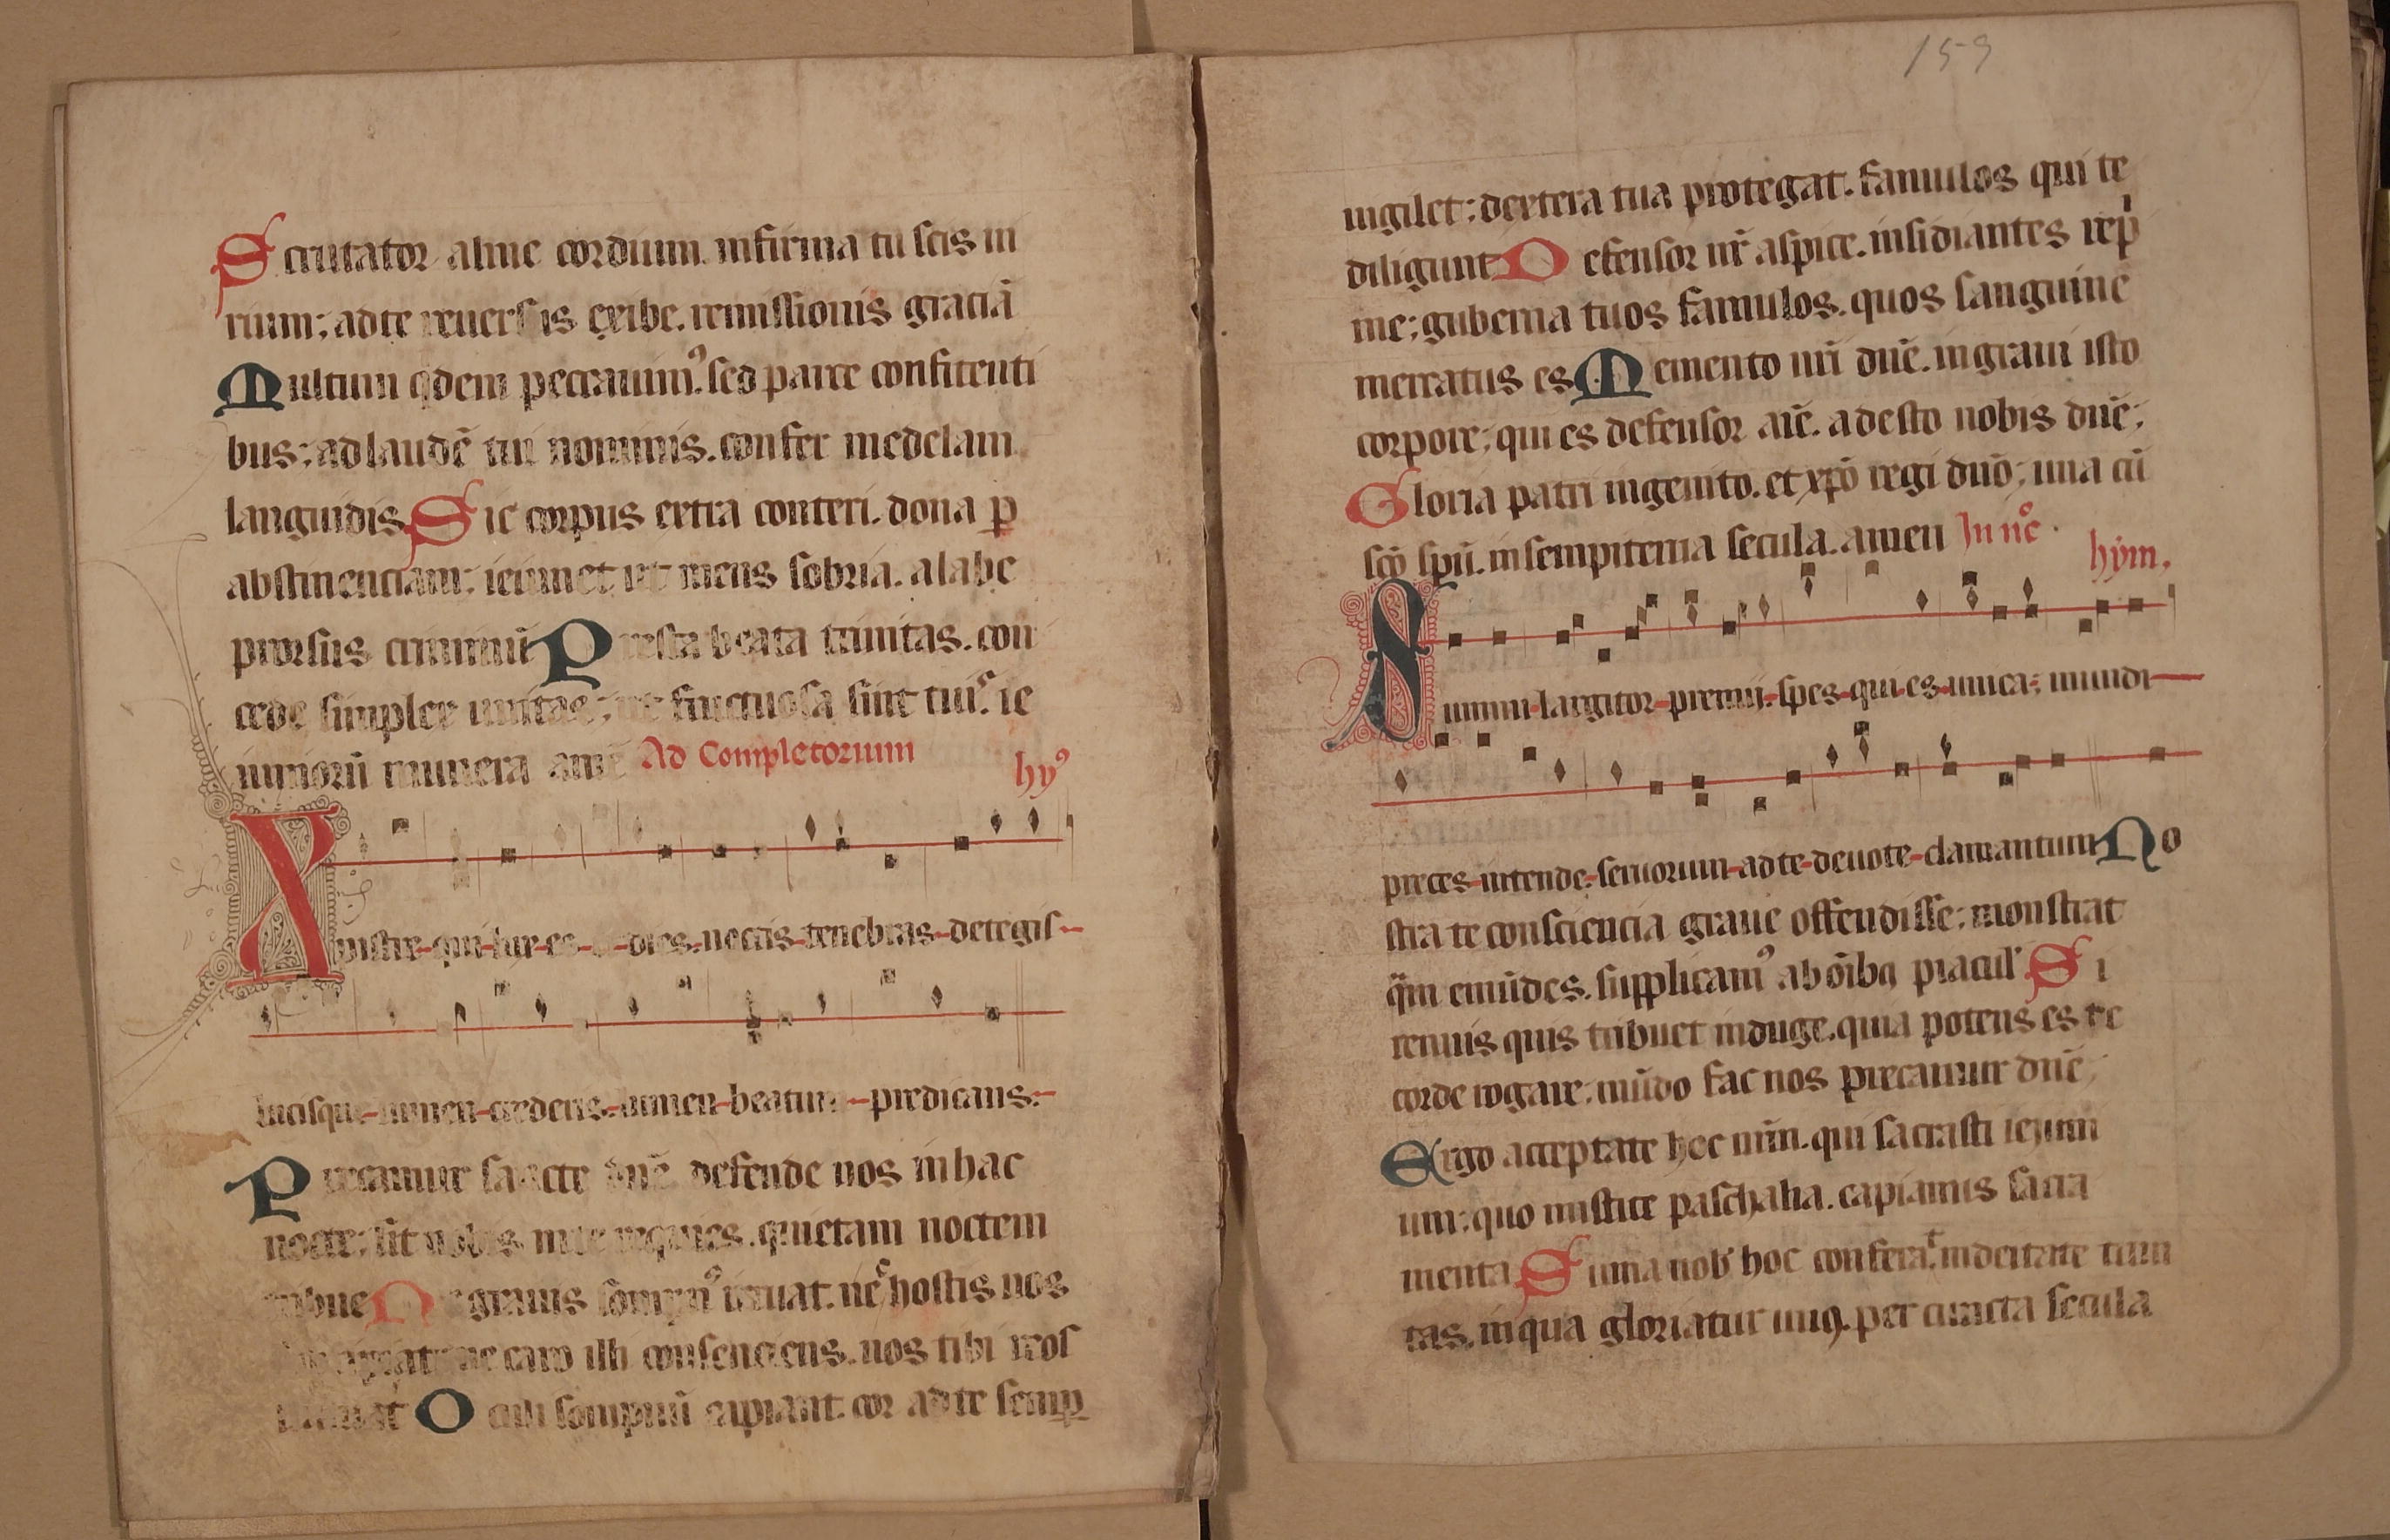 Scrutator alme cordium infirma tu scis ui
rium; ad te reuersis exibe. remissionis graciā
Multum qdem peccauim⁹. sed parce confitenti
bus; ad laudē tui nominis. confer medelam
languidis Sic corpus extra conteri. dona ꝑ
abstinenciam; ieiunet ut mens sobria. a labe
prorsus criminū Presta beata trinitas. con
cede simplex unitas; ut fructuosa sint tuis ie
iuniorū munera amē Ad Completorium
hy⁹
Xpriste qui lux es dies. noctis tenebras detegis
lucisque lumen crederis. lumen beatum predicans.
Precamur sancte dnē defende nos in hac
nocte; sit nobis in te requies. quietam noctem
tribue Ne grauis sompn⁹ irruat. nec hostis nos
caro illi consenciens. nos tibi reos
statuat Oculi sompnū capiant. cor ad te semꝑ
159
uigilet; dextera tua protegat. famulos qui te
diligunt Defensor nr̄ aspice. insidiantes rep̄
me; guberna tuos famulos. quos sanguine
mercatus es Memento nri dnē. in graui isto
corpore; qui es defensor aīe. adesto nobis dnē;
Gloria patri ingenito. et xpō regi dnō; una cū
scō spū. in sempiterna secula. amen In nc̄.
hym.
Summi largitor premij. spes qui es unica; mundi
preces intende. seruorum ad te deuote clamantum No
stra te consciencia graue offendisse; monstrat
qm emūdes. supplicam⁹ ab oībꝫ piacul' Si
renuis quis tribuet induge. quia potens es te
corde rogare; mūdo fac nos precamur dnē;
Ergo acceptare hoc nm̄. qui sacrasti ieiuni
um; quo mistice paschalia. capiamus sacra
menta Sūma nob' hoc conferat in deitate trini
tas. in qua gloriatur unꝯ. per cuncta secula